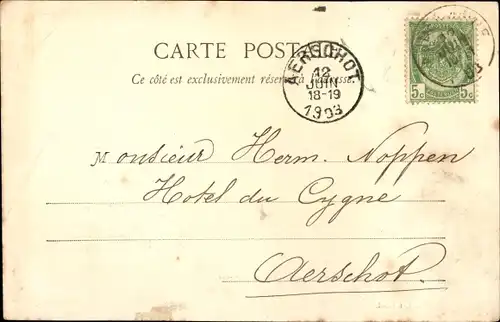 CARTE POSTALE
Ce côté est exclusivement réservé à l'adresse.
AERSCHOT
12
JUIN
18-19
1903
5c 5c
Monsieur Herm. Noppen
Hotel du Cygne
Aerschot.